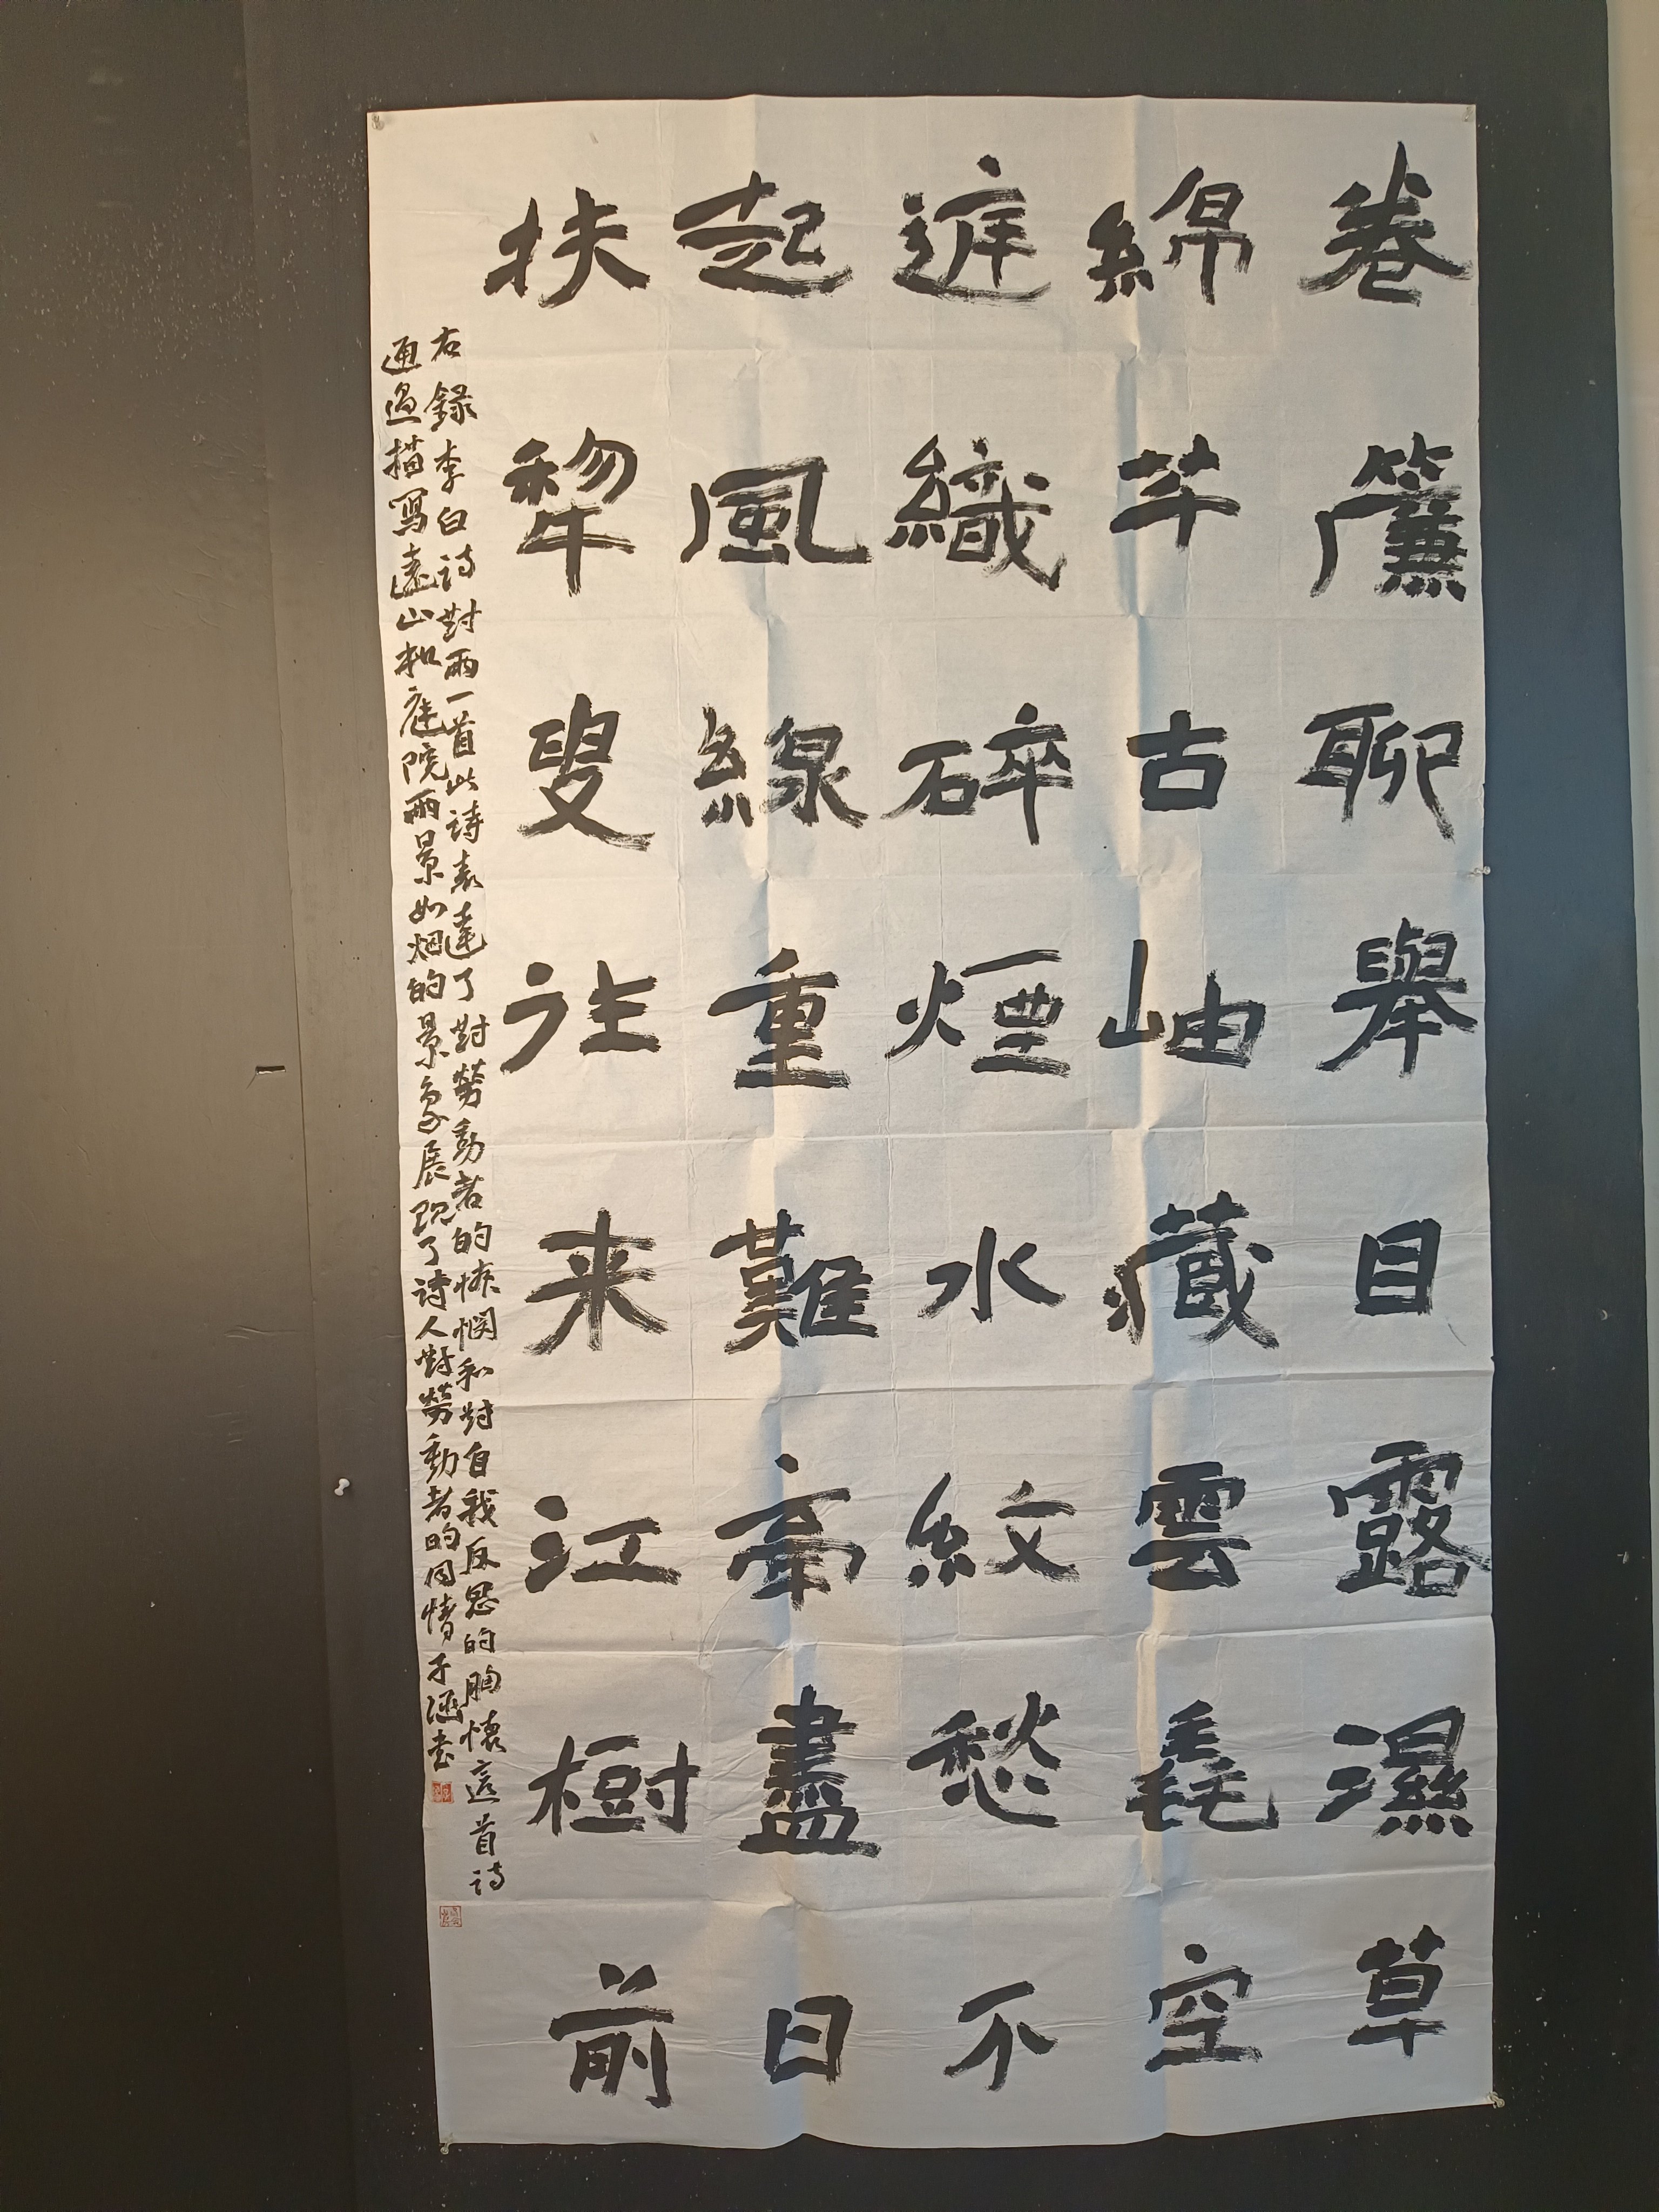 卷簾聊舉目露濕草
綿芊古岫藏雲毳空
庭織碎煙水紋愁不
起風線重難牽盡日
扶犂叟往来江樹前
右錄李白詩對雨一首此詩表達了對勞動者的憐憫和對自我反思的胸懷這首詩
通過描寫遠山和庭院雨景如烟的景象展現了詩人對勞動者的同情子涵書